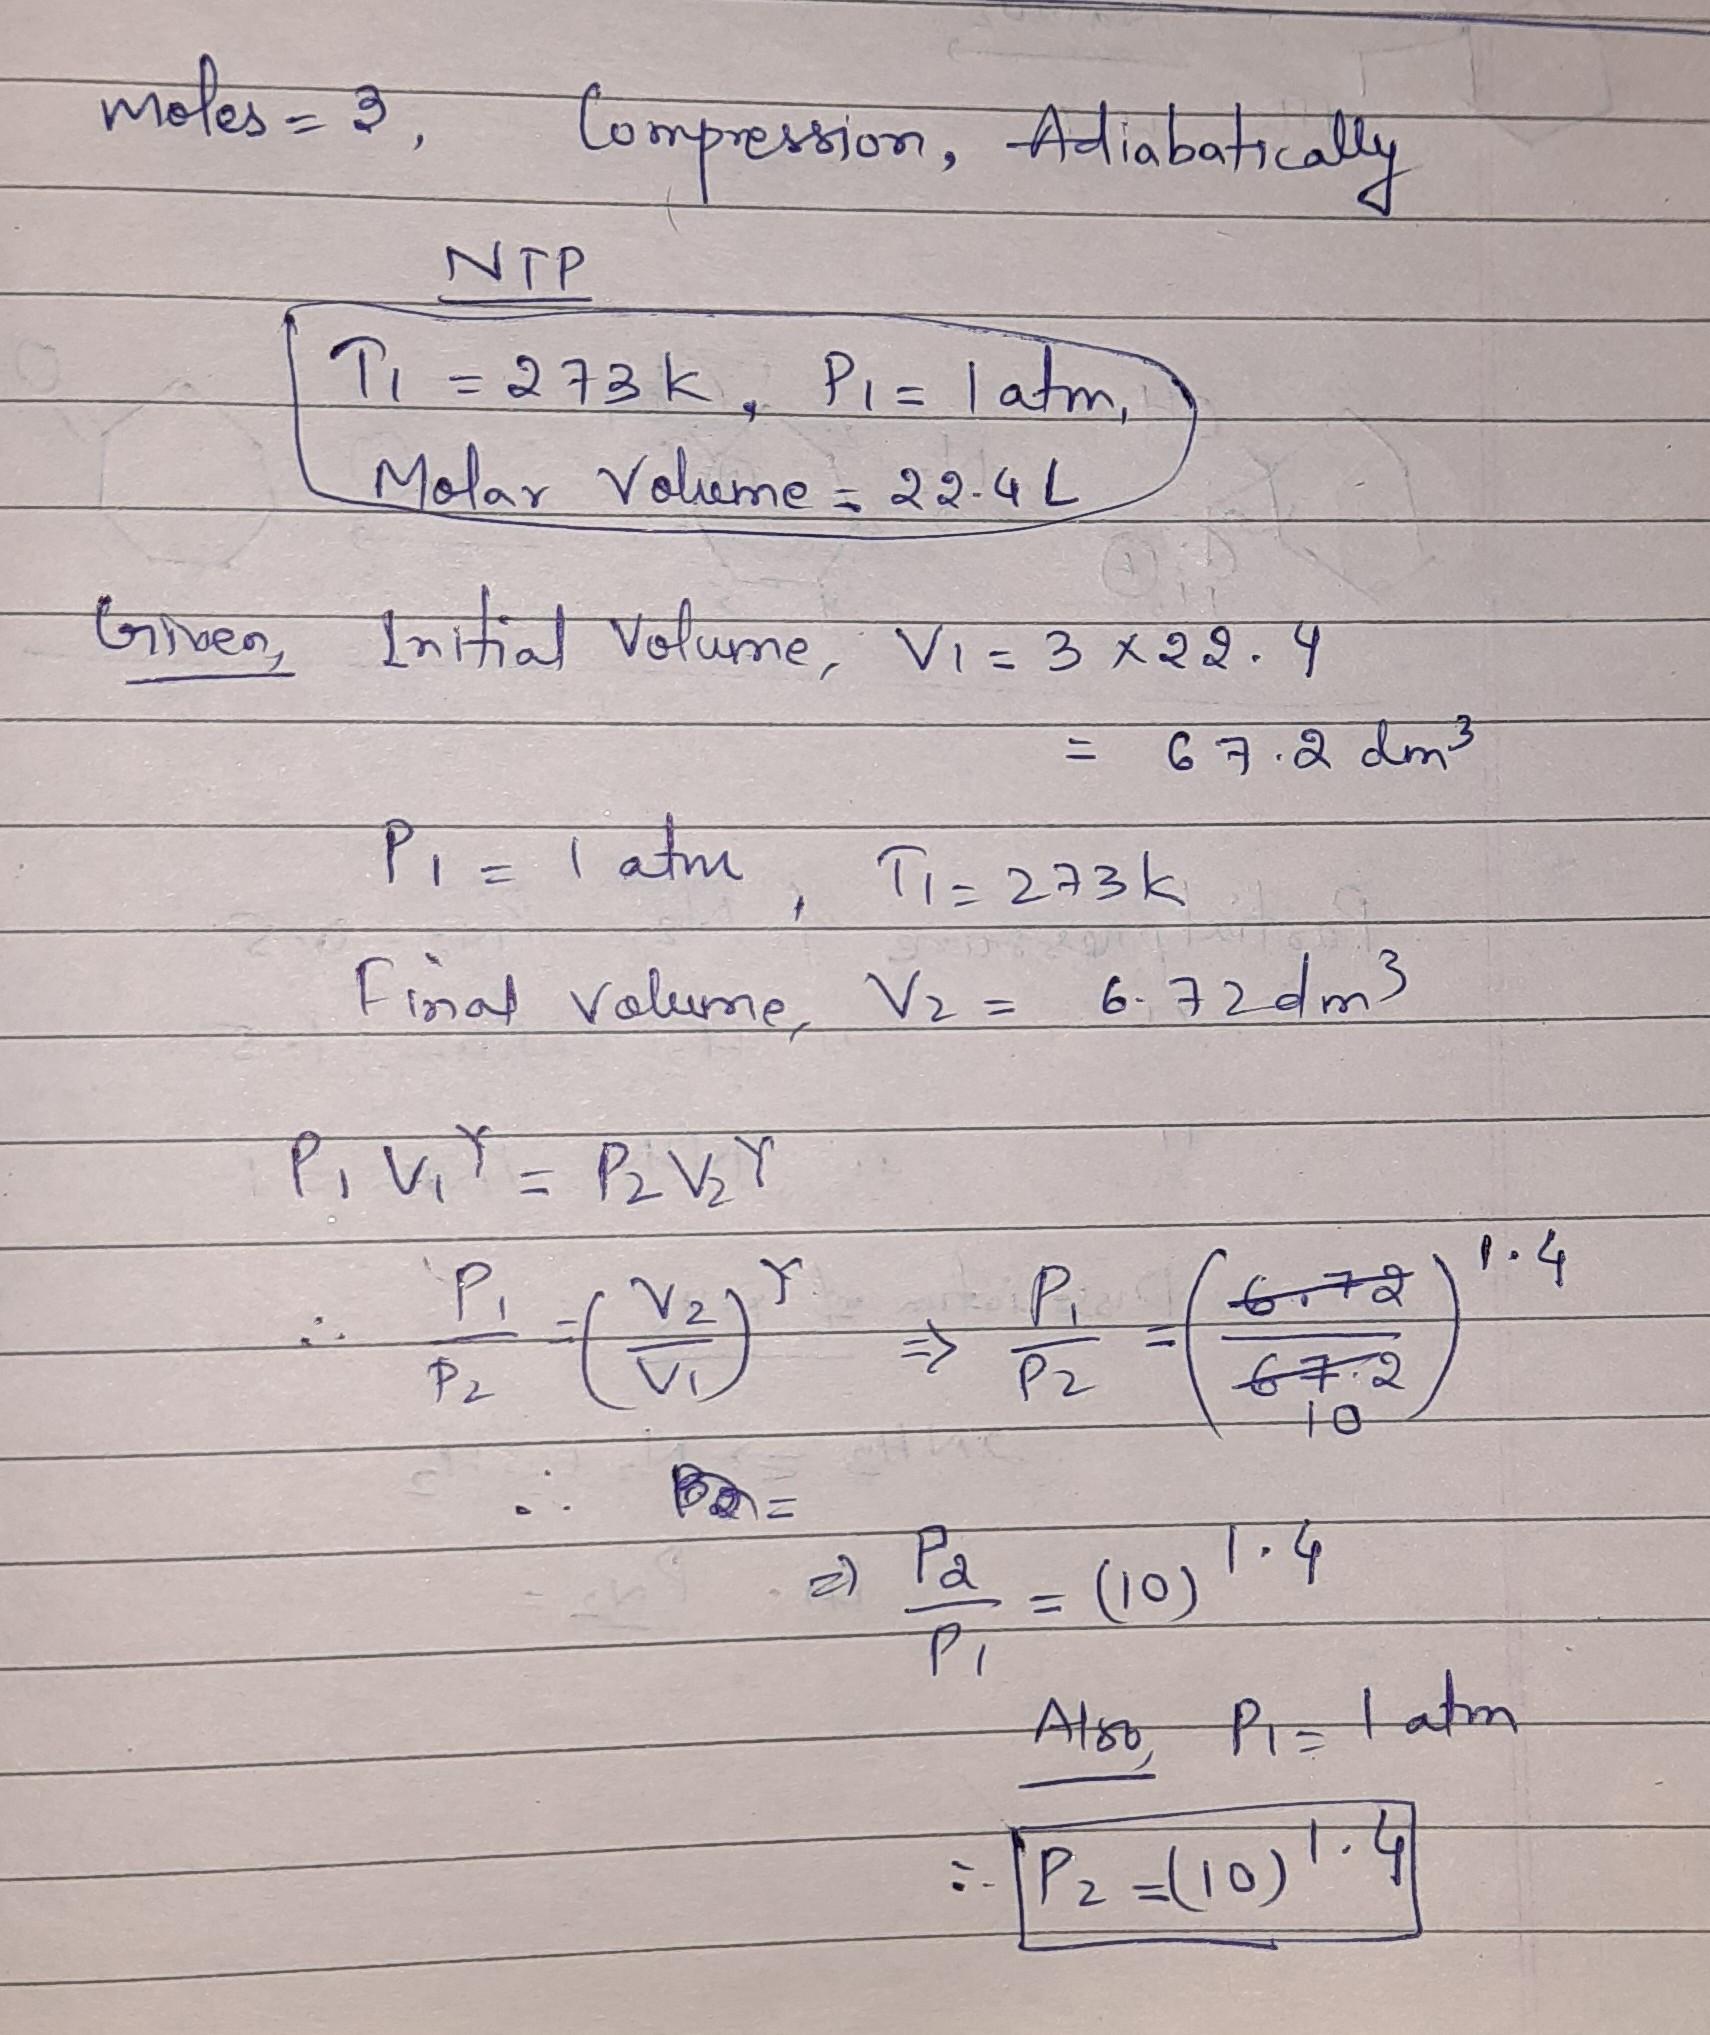 moles = 3, Compression, Adiabatically
NTP
T₁ = 273 k, P₁ = 1 atm,
Molar Volume = 22.4 L
Given, Initial Volume, V₁ = 3 × 22.4
= 67.2 dm³
P₁ = 1 atm, T₁ = 273k
Final Volume, V₂ = 6.72 dm³
P₁ V₁^γ = P₂ V₂^γ
∴ P₁/P₂ = (V₂/V₁)^γ ⇒ P₁/P₂ = (6.72/67.2 10)^1.4
∴ =
⇒ P₂/P₁ = (10)^1.4
Also, P₁ = 1 atm
∴ P₂ = (10)^1.4